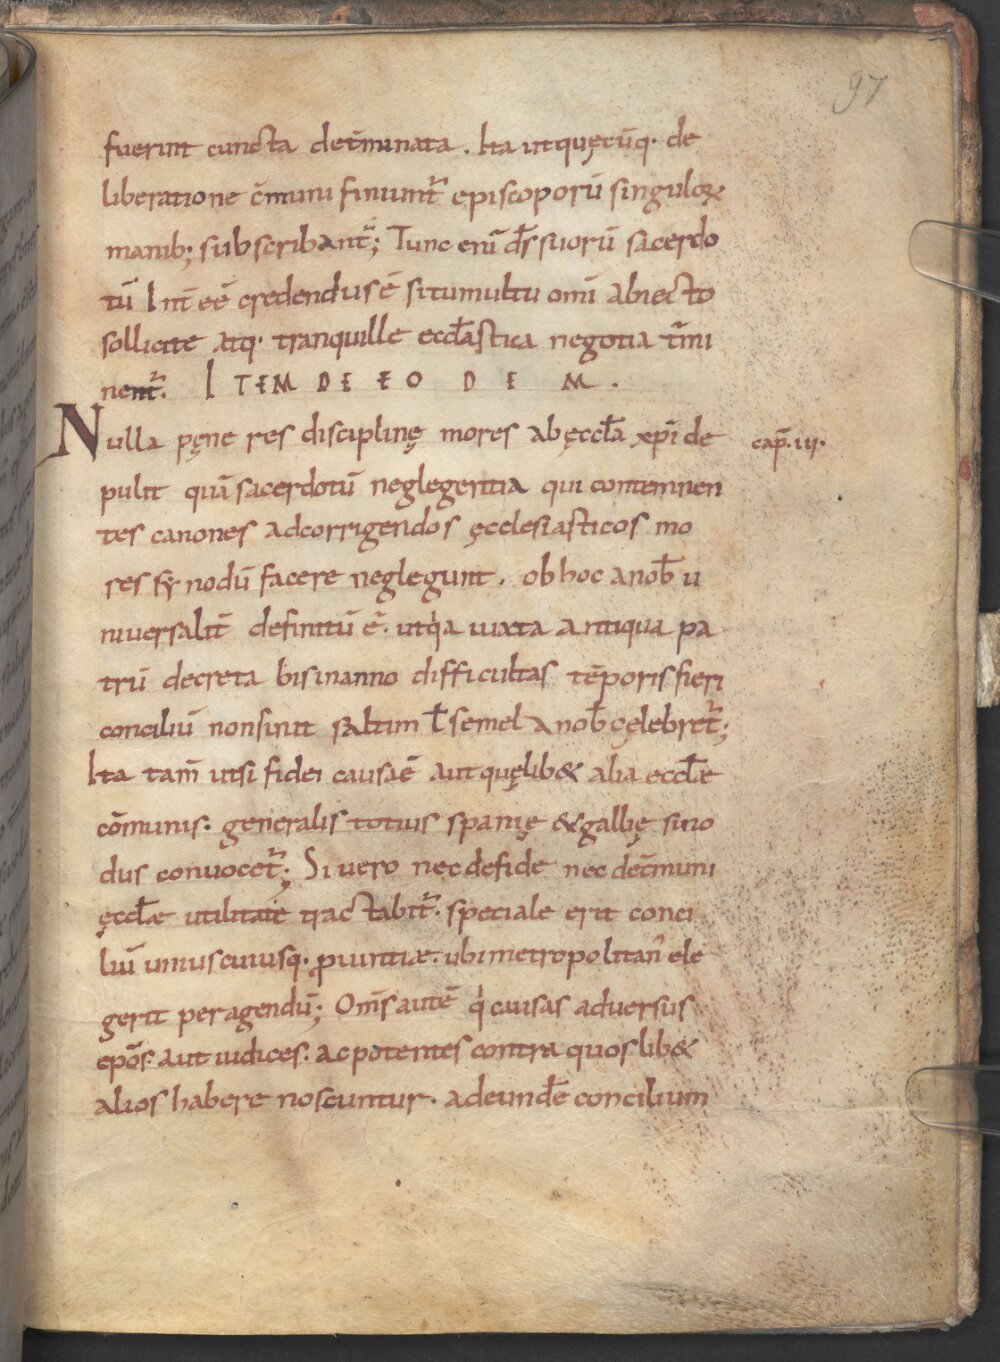 97
fuerint cuncta det̄minata. Ita ut quęcūq· de
liberatione c̄muni finiunt̄ episcoporū singuloꝝ
manib; subscribant̄; Tunc enī d̄s suorū sacerdo
tū Int̄ēē credendus ē si tumultu om̄i abiecto
sollicite atq· tranquille eccl̄astica negotia t̄mi
nent̄. ITEM DE EODEM.
Nulla pęne res disciplinę mores ab ęccl̄a xp̄i de
cap̄. iii·
pulit quā sacerdotū neglegentia qui contemnen
tes canones ad corrigendos ęcclesiasticos mo
res synodū facere neglegunt. ob hoc a nob̄ u
niversalit̄ definitū ē. ut q̇a iuxta antiqua pa
trū decreta bis in anno difficultas tēporis fieri
conciliū non sinit saltim ł semel a nob̄ cęlebret̄;
Ita tam̄ ut si fidei causa ē aut quęlib& alia eccl̄æ
cōmunis· generalis totius spanię & gallię sino
dus convocet̄; Si vero nec de fide nec de c̄muni
ęccl̄æ utilitate tractabit̄· speciale erit conci
liū uniuscuiusq· ꝓvintiæ· ubi metropolitan᾽ ele
gerit peragendū; Om̄s autē q̇ causas adversus
ep̄os· aut iudices· ac potentes contra quoslib&
alios habere noscuntur· ad eund̄e concilium